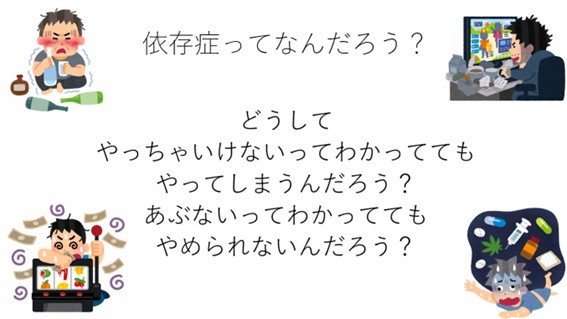 依存症ってなんだろう？
どうして
やっちゃいけないってわかってても
やってしまうんだろう？
あぶないってわかってても
やめられないんだろう？